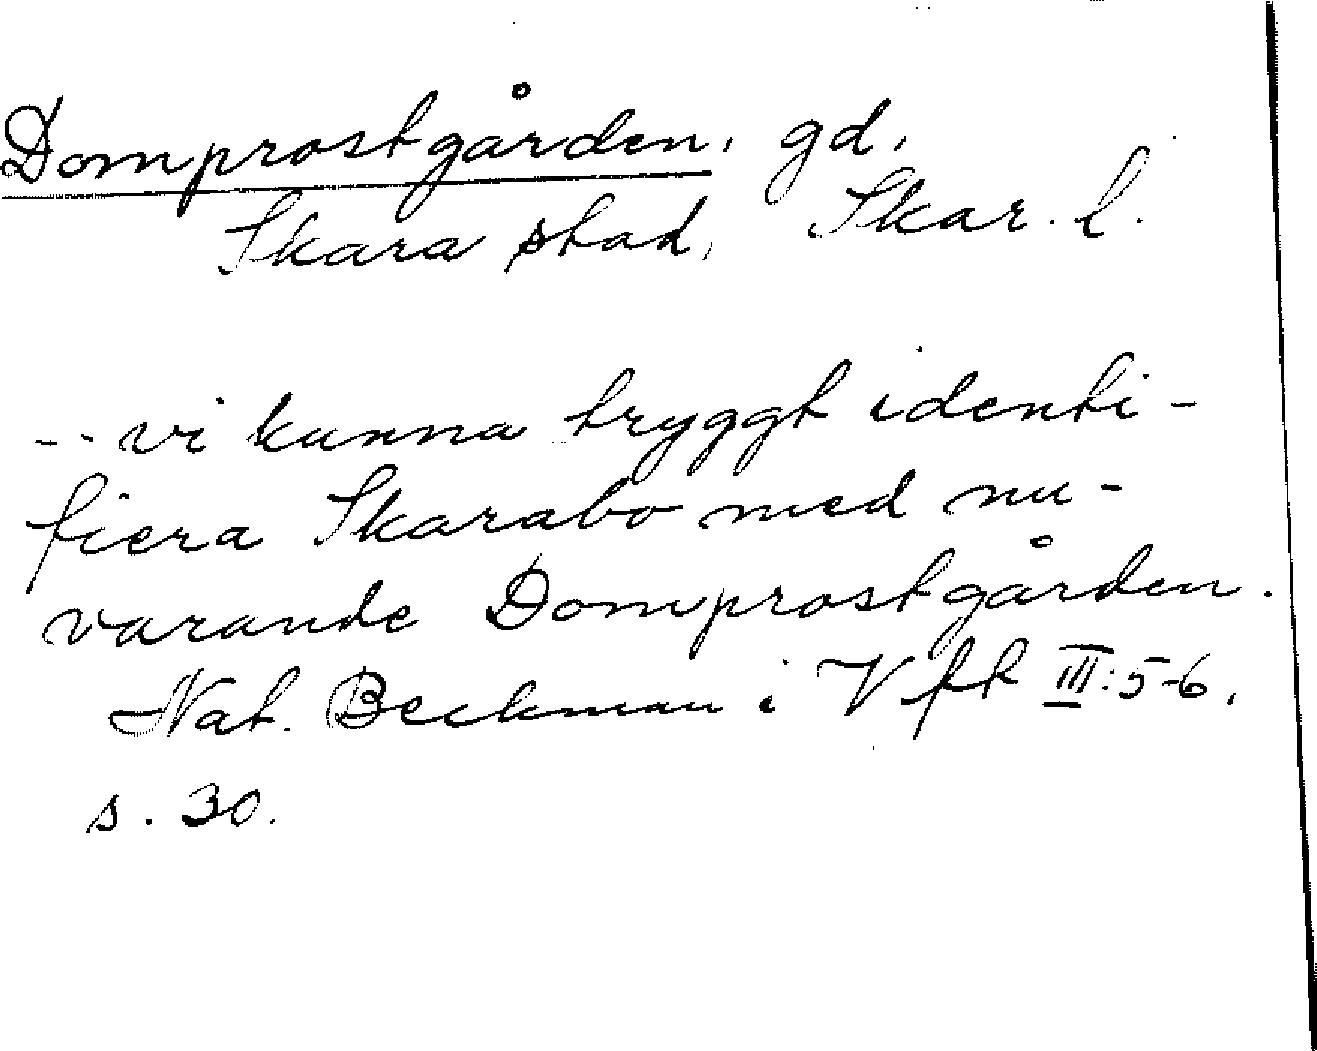 Domprostgården, gd,
Skara stad, Skar. l.
--vi kunna tryggt identi-
fiera Skarabo med nu-
varande Domprostgården.
Nat. Beckman i Vfk III:5-6,
s. 30.